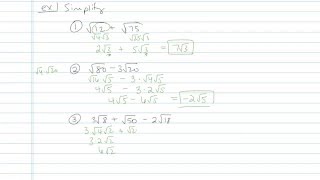 ex) Simplify
① √12 + √75
√4√3 √25√3
2√3 + 5√3 = 7√3
② √80 - 3√20
√16√5 - 3·√4√5
4√5 - 3·2√5
4√5 - 6√5 = -2√5
③ 3√8 + √50 - 2√18
3√4√2 + √2
3·2√2
6√2